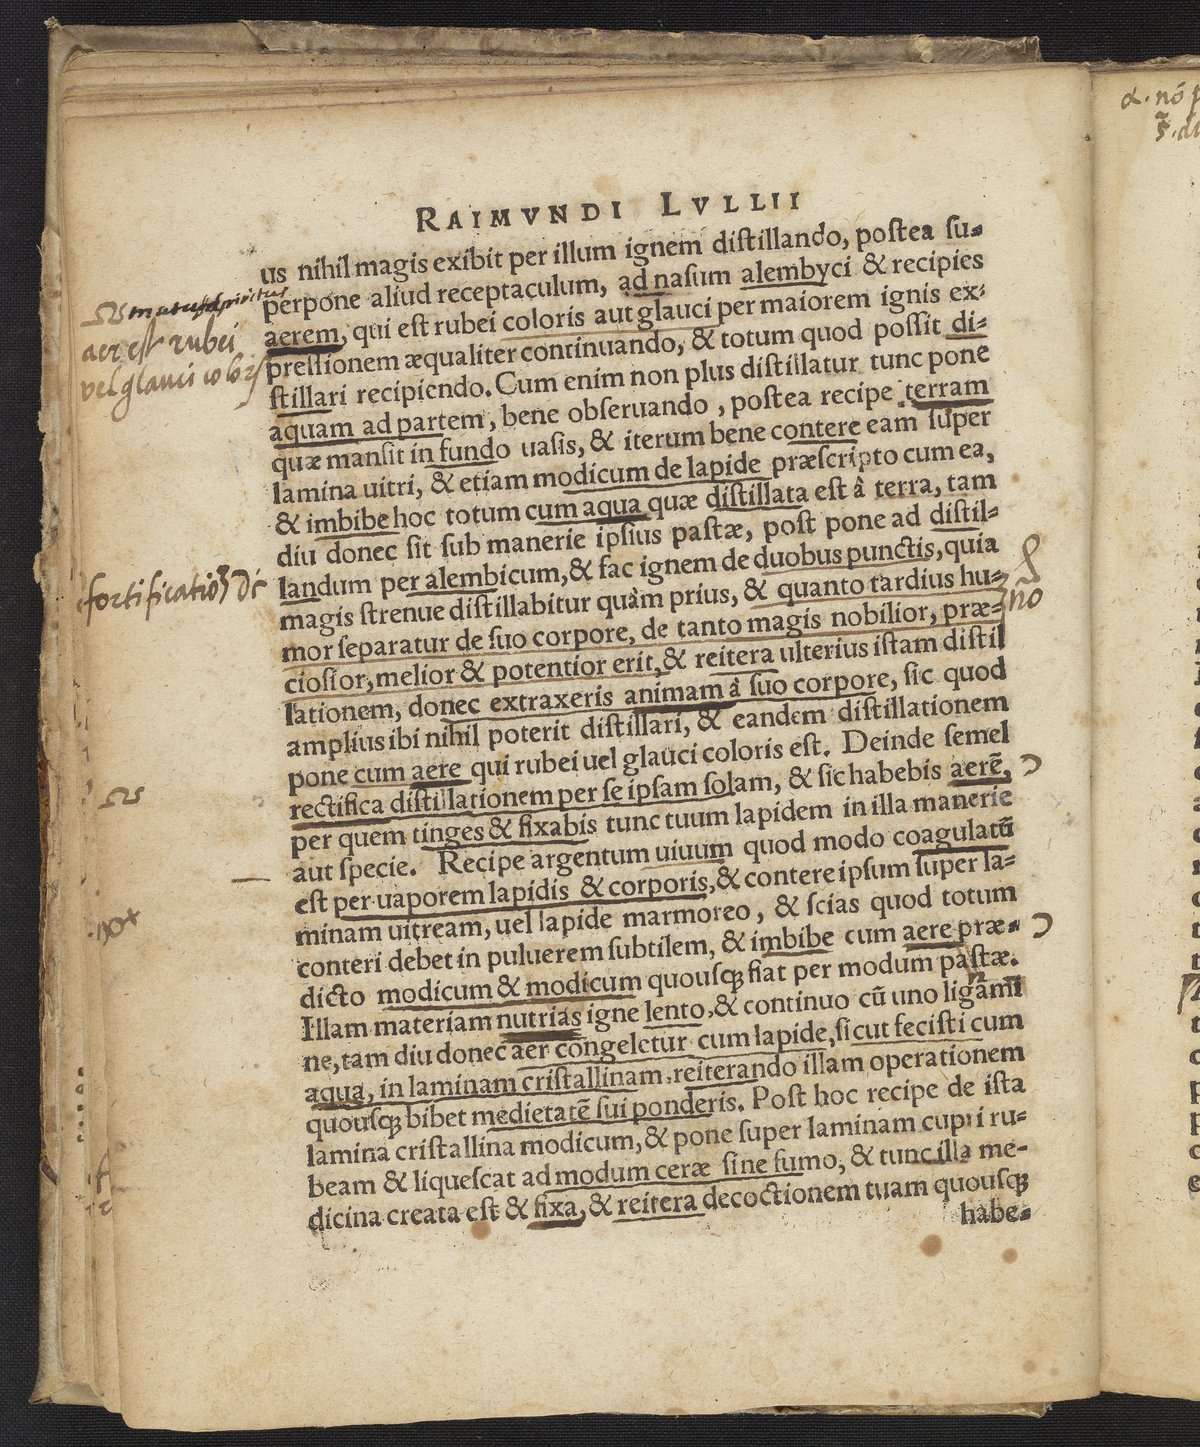 RAIMVNDI LVLLII
us nihil magis exibit per illum ignem distillando, postea su-
perpone aliud receptaculum, ad nasum alembyci & recipies
aerem, qui est rubei coloris aut glauci per maiorem ignis ex-
pressionem æqualiter continuando, & totum quod possit di-
stillari recipiendo. Cum enim non plus distillatur tunc pone
aquam ad partem, bene obseruando, postea recipe terram
quæ mansit in fundo uasis, & iterum bene contere eam super
lamina uitri, & etiam modicum de lapide præscripto cum ea,
& imbibe hoc totum cum aqua quæ distillata est à terra, tam
diu donec sit sub manerie ipsius pastæ, post pone ad distil-
landum per alembicum, & fac ignem de duobus punctis, quia
magis strenue distillabitur quàm prius, & quanto tardius hu-
mor separatur de suo corpore, de tanto magis nobilior, præ-
ciosior, melior & potentior erit, & reitera ulterius istam distil
lationem, donec extraxeris animam à suo corpore, sic quod
amplius ibi nihil poterit distillari, & eandem distillationem
pone cum aere qui rubei uel glauci coloris est. Deinde semel
rectifica distillationem per se ipsam solam, & sic habebis aerē,
per quem tinges & fixabis tunc tuum lapidem in illa manerie
aut specie. Recipe argentum uiuum quod modo coagulatū
est per uaporem lapidis & corporis, & contere ipsum super la-
minam uitream, uel lapide marmoreo, & scias quod totum
conteri debet in puluerem subtilem, & imbibe cum aere præ-
dicto modicum & modicum quousq; fiat per modum pastæ.
Illam materiam nutrias igne lento, & continuo cū uno ligami
ne, tam diu donec aer congeletur cum lapide, sicut fecisti cum
aqua, in laminam cristallinam, reiterando illam operationem
quousq; bibet medietatē sui ponderis. Post hoc recipe de ista
lamina cristallina modicum, & pone super laminam cupri ru-
beam & liquescat ad modum ceræ sine fumo, & tunc illa me-
dicina creata est & fixa, & reitera decoctionem tuam quousq;
habe-
aer est rubei
vel glauci coloris
nō